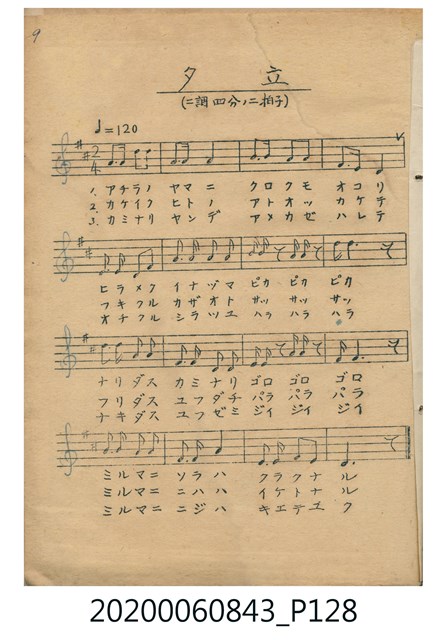 9
夕立
(ニ調四分ノ二拍子)
♩=120
2/4
1. アチラノ ヤマニ クロクモ オコリ
2. カケイク ヒトノ アトオッ カケテ
3. カミナリ ヤンデ アメカゼ ハレテ
ヒラメク イナヅマ ピカ ピカ ピカ
フキフル カザオト サッ サッ サッ
オチフル シラツユ ハラ ハラ ハラ
ナリダス カミナリ ゴロ ゴロ ゴロ
フリダス ユフダチ パラ パラ パラ
ナキダス ユフゼミ ジイ ジイ ジイ
ミルマニ ソラハ クラクナル
ミルマニ ニハハ イケトナル
ミルマニ ニジハ キエテユク
20200060843_P128